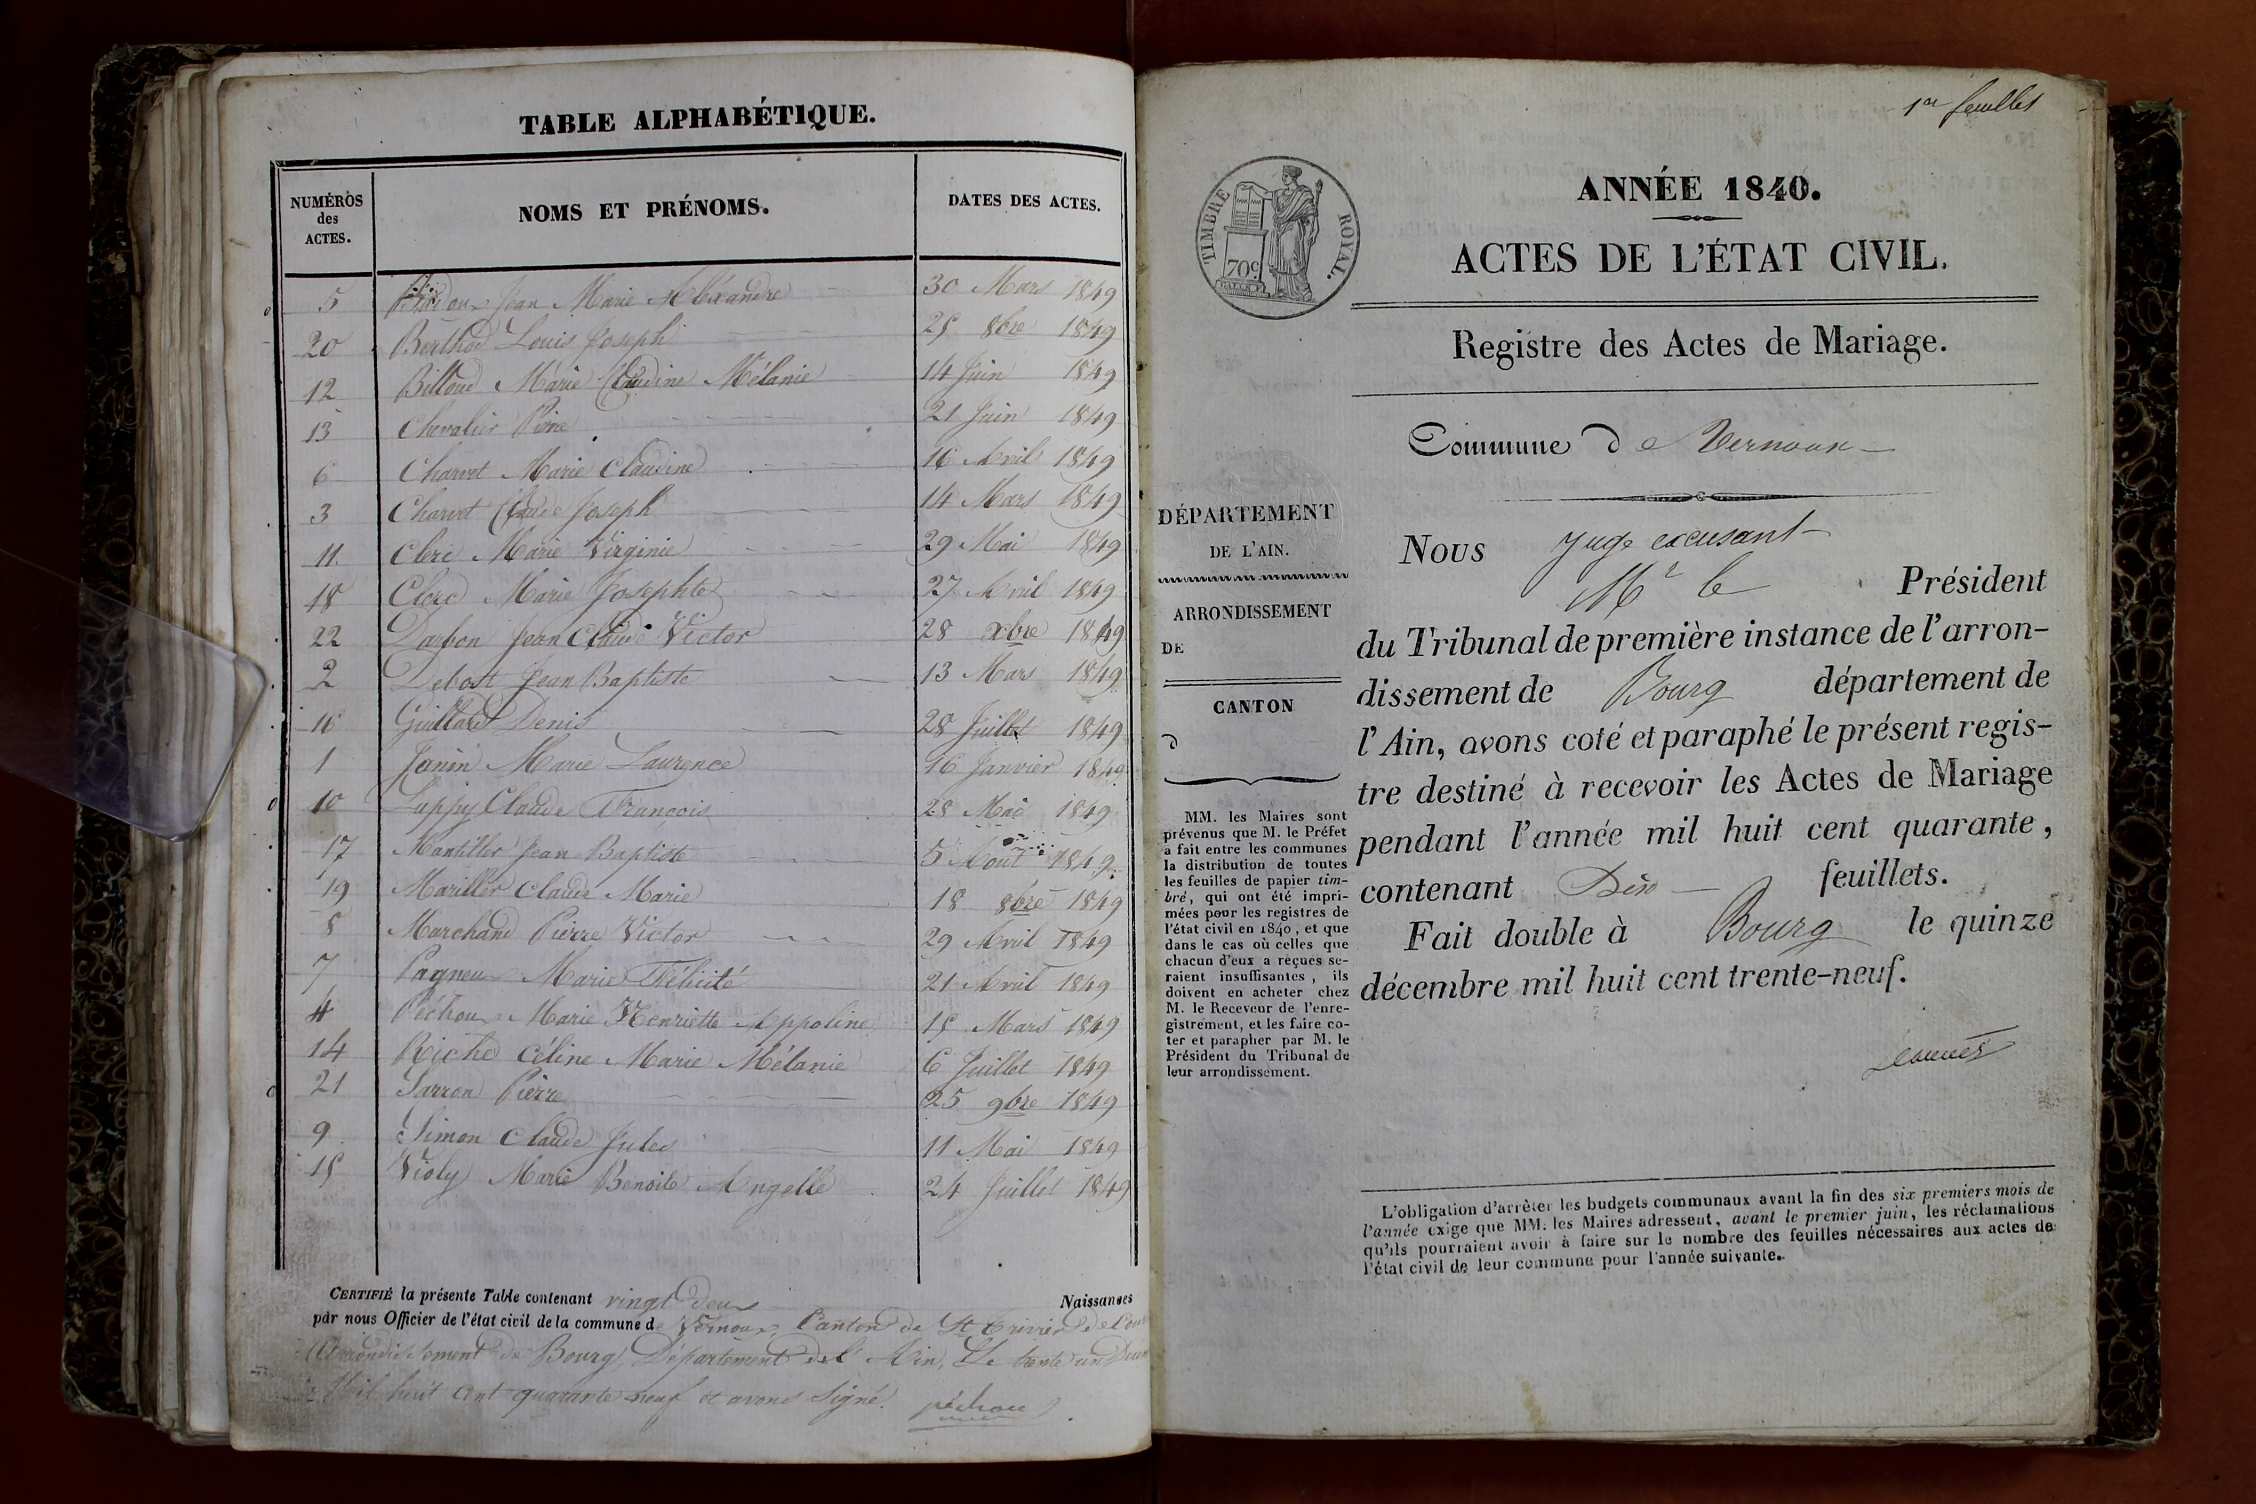 TABLE ALPHABÉTIQUE.
NUMÉROS
des
ACTES.
NOMS ET PRÉNOMS.
DATES DES ACTES.
5 Jean Marie Aléxandre 30 Mars 1849
20 Berthod Louis Joseph 25 8bre 1849
12 Billoud Marie Claudine Mélanie 14 Juin 1849
13 Chevalier Pierre 21 Juin 1849
6 Charvet Marie Claudine 16 Avril 1849
3 Charvet Claude Joseph 14 Mars 1849
11 Clerc Marie Virginie 29 Mai 1849
18 Clerc Marie Josephte 27 Avril 1849
22 Darbon Jean Claude Victor 28 xbre 1849
2 Debost Jean Baptiste 13 Mars 1849
16 Guillard Denis 28 Juillet 1849
1 Janin Marie Laurence 16 Janvier 1849
10 Luppy Claude François 28 Mai 1849
17 Mantiller Jean Baptiste 5 Aout 1849
19 Mariller Claude Marie 18 8bre 1849
8 Marchand Pierre Victor 29 Avril 1849
7 Pagneux Marie Félicité 21 Avril 1849
4 Péchoux Marie Henriette Appoline 15 Mars 1849
14 Riche Céline Marie Mélanie 6 Juillet 1849
21 Sarron Pierre 25 9bre 1849
9 Simon Claude Jules 11 Mai 1849
15 Violy Marie Benoite Angelle 24 Juillet 1849
CERTIFIÉ la présente Table contenant vingt deux Naissances
par nous Officier de l'état civil de la commune de Vernoux, Canton de St Trivier de Cour
Arrondissement de Bourg, Département de l'Ain, Le trente un
Mil huit cent quarante neuf et avons Signé. péchoux
1er feuillet
TIMBRE ROYAL.
70c.
ANNÉE 1840.
ACTES DE L'ÉTAT CIVIL.
Registre des Actes de Mariage.
Commune de Vernoux
DÉPARTEMENT
DE L'AIN.
ARRONDISSEMENT
DE
CANTON
d
MM. les Maires sont
prévenus que M. le Préfet
a fait entre les communes
la distribution de toutes
les feuilles de papier tim-
bré, qui ont été impri-
mées pour les registres de
l'état civil en 1840, et que
dans le cas où celles que
chacun d'eux a reçues se-
raient insuffisantes, ils
doivent en acheter chez
M. le Receveur de l'enre-
gistrement, et les faire co-
ter et parapher par M. le
Président du Tribunal de
leur arrondissement.
Nous juge excusant
Mr le Président
du Tribunal de première instance de l'arron-
dissement de Bourg département de
l'Ain, avons coté et paraphé le présent regis-
tre destiné à recevoir les Actes de Mariage
pendant l'année mil huit cent quarante,
contenant Dix feuillets.
Fait double à Bourg le quinze
décembre mil huit cent trente-neuf.
L'obligation d'arrêter les budgets communaux avant la fin des six premiers mois de
l'année exige que MM. les Maires adressent, avant le premier juin, les réclamations
qu'ils pourraient avoir à faire sur le nombre des feuilles nécessaires aux actes de
l'état civil de leur commune pour l'année suivante.